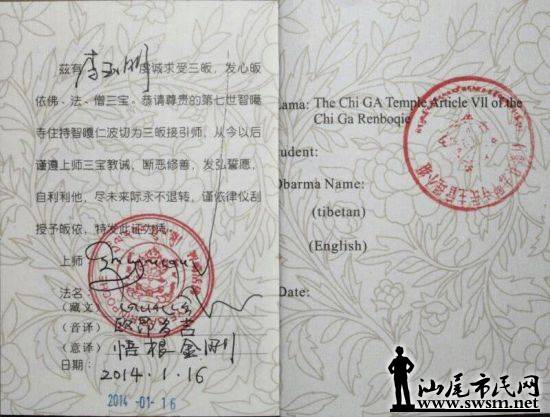 兹有 李玉明 虔诚求受三皈，发心皈
依佛、法、僧三宝。恭请尊贵的第七世智嘎
寺住持智嘎仁波切为三皈接引师，从今以后
谨遵上师三宝教诫，断恶修善，发弘誓愿，
自利利他，尽未来际永不退转，谨依律仪刮
授予皈依，特发此证为凭。
上师
法名
(藏文)
(音译)
(意译) 悟根金刚
日期： 2014.1.16
2014 -01- 16
Lama: The Chi GA Temple Article Vll of the
Chi Ga Renboqie
Student:
Dharma Name:
(tibetan)
(English)
Date:
汕尾市民网
www.swsm.net